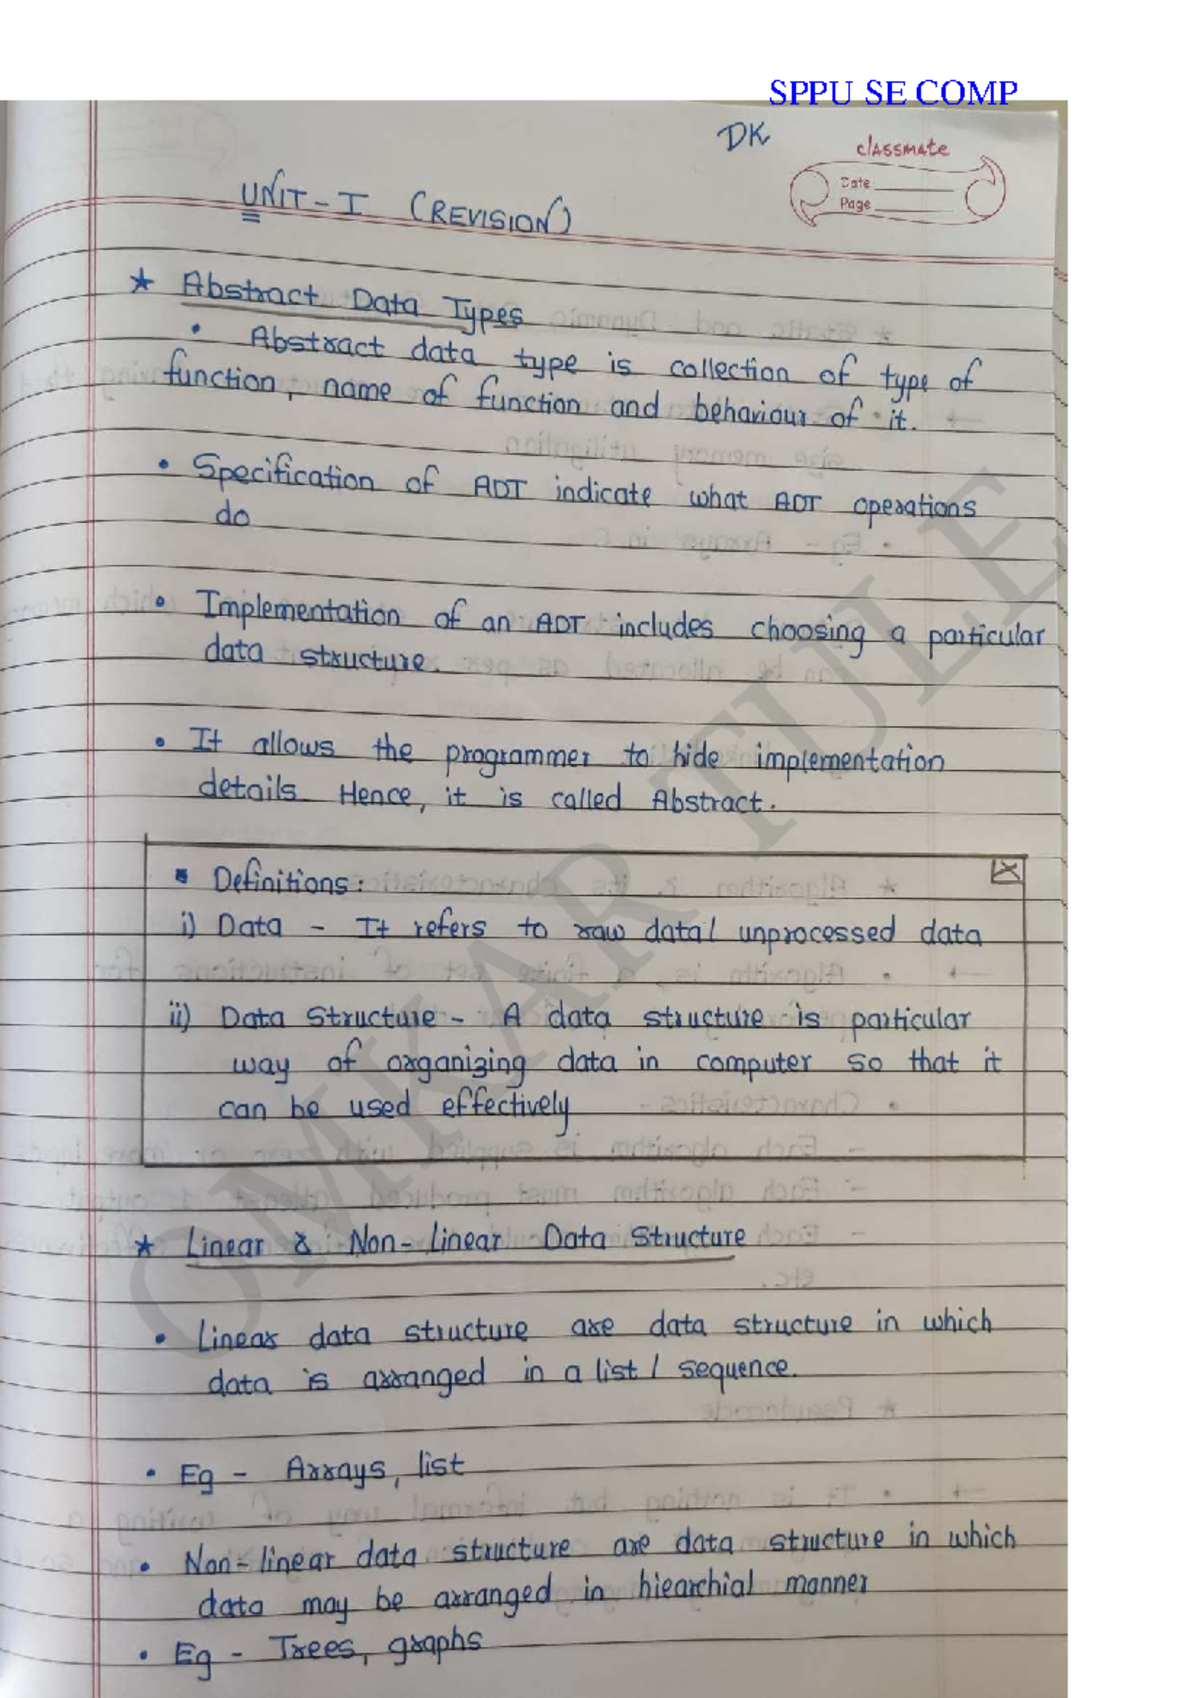 SPPU SE COMP
DK
classmate
Date
Page
UNIT - I (REVISION)
★ Abstract Data Types
• Abstract data type is collection of type of
function, name of function and behaviour of it.
• Specification of ADT indicate what ADT operations
do
• Implementation of an ADT includes choosing a particular
data structure.
• It allows the programmer to hide implementation
details Hence, it is called Abstract.
▪ Definitions:
i) Data - It refers to raw data / unprocessed data
ii) Data Structure - A data structure is particular
way of organizing data in computer so that it
can be used effectively
★ Linear & Non-linear Data Structure
• Linear data structure are data structure in which
data is arranged in a list / sequence.
• Eg - Arrays, list
• Non-linear data structure are data structure in which
data may be arranged in hiearchial manner
• Eg - Trees, graphs
OMKAR TULE